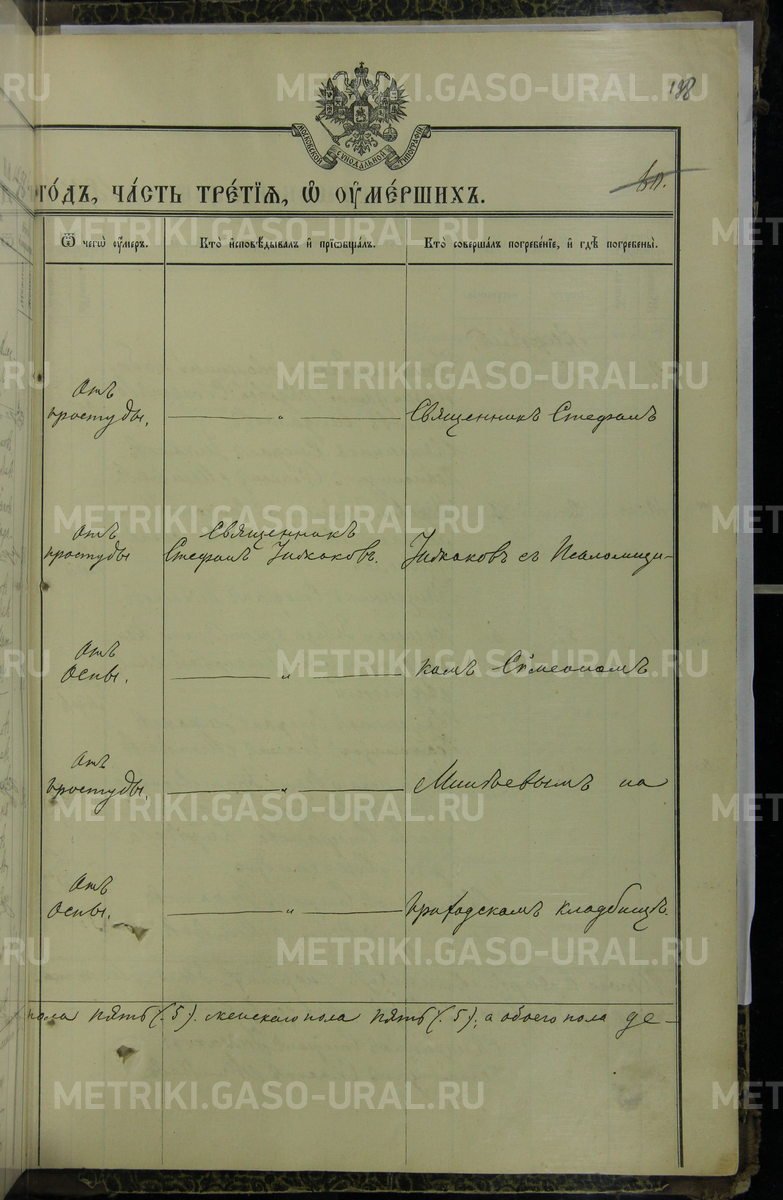 188
МОСКОВСКОЙ СѴНОДАЛЬНОЙ ТИПОГРАФІИ
ГО́ДЪ, ЧА́СТЬ ТРЕ́ТІЯ, Ѡ҆ ОУ҆МЕ́РШИХЪ.
Ѿ чегѡ̀ оу҆́меръ.
Кто̀ и҆сповѣ́дывалъ и҆ прїѡбща́лъ.
Кто̀ соверша́лъ погребе́нїе, и҆ гдѣ̀ погребены̀.
Отъ
простуды.
"
Священникъ Стефанъ
Отъ
простуды
Священникъ
Стефанъ
съ Псаломщи-
Отъ
Оспы.
"
комъ Сѵмеономъ
Отъ
простуды.
"
на
Отъ
Оспы.
"
приходскомъ кладбищѣ.
пола пять (. 5). женскаго пола пять (. 5); а обоего пола де-
METRIKI.GASO-URAL.RU